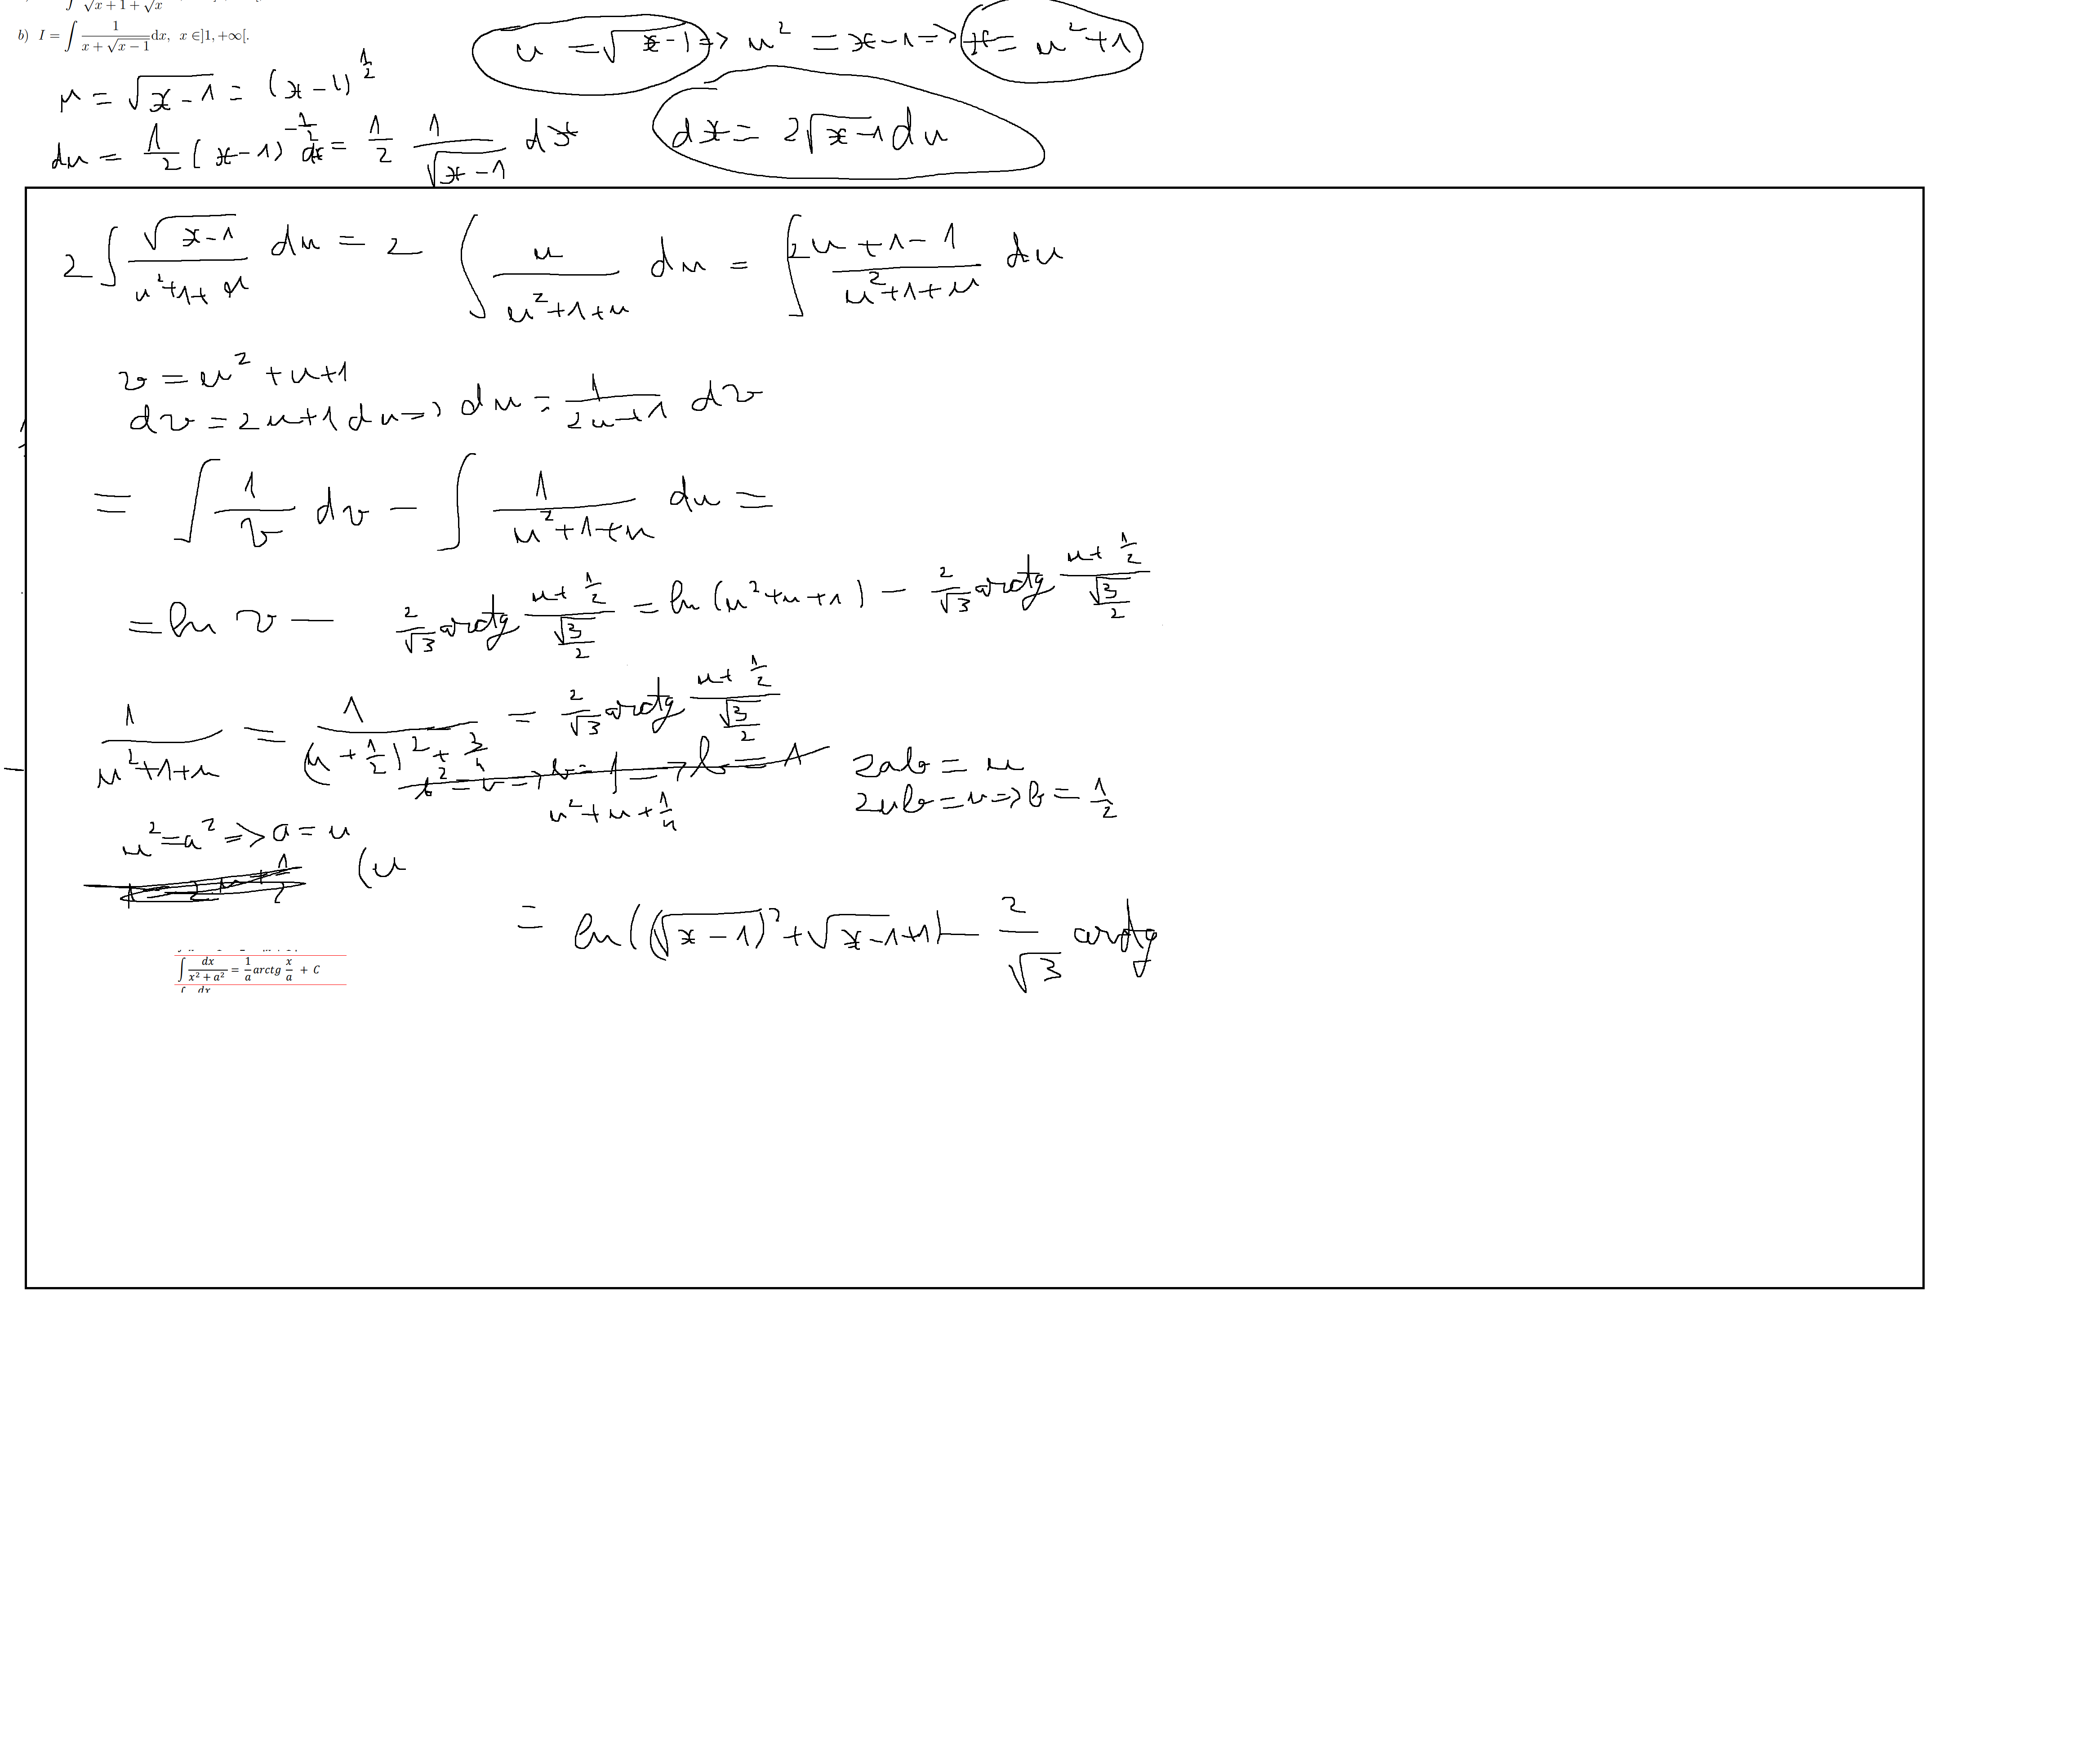 ∫ √x + 1 + √x
b) I = ∫ 1/(x + √(x − 1)) dx, x ∈]1, +∞[.
u = √(x-1) => u² = x-1 => x = u²+1
u = √(x-1) = (x-1)^(1/2)
du = 1/2 (x-1)^(-1/2) dx = 1/2 1/√(x-1) dx
dx = 2√(x-1) du
2∫ √(x-1)/(u²+1+u) du = 2 ∫ u/(u²+1+u) du = ∫ (2u+1-1)/(u²+1+u) du
v = u²+u+1
dv = 2u+1 du => du = 1/(2u+1) dv
= ∫ 1/v dv - ∫ 1/(u²+1+u) du =
= ln v - 2/√3 arctg (u+1/2)/(√3/2) = ln(u²+u+1) - 2/√3 arctg (u+1/2)/(√3/2)
1/(u²+1+u) = 1/((u+1/2)²+3/4) = 2/√3 arctg (u+1/2)/(√3/2)
2ab = u
u²+u+1/4
2ub = u => b = 1/2
u² = a² => a = u
(u
= ln((√(x-1))²+√(x-1)+1) - 2/√3 arctg
∫ dx/(x² + a²) = 1/a arctg x/a + C
∫ dx